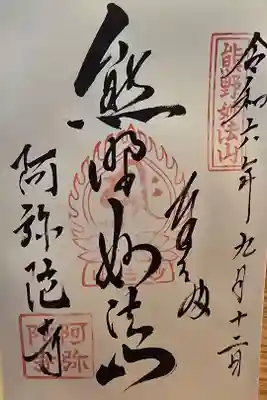 令和六年九月十二日
熊野妙法山
奉拝
熊野妙法山
阿弥陀寺
阿弥
陀寺